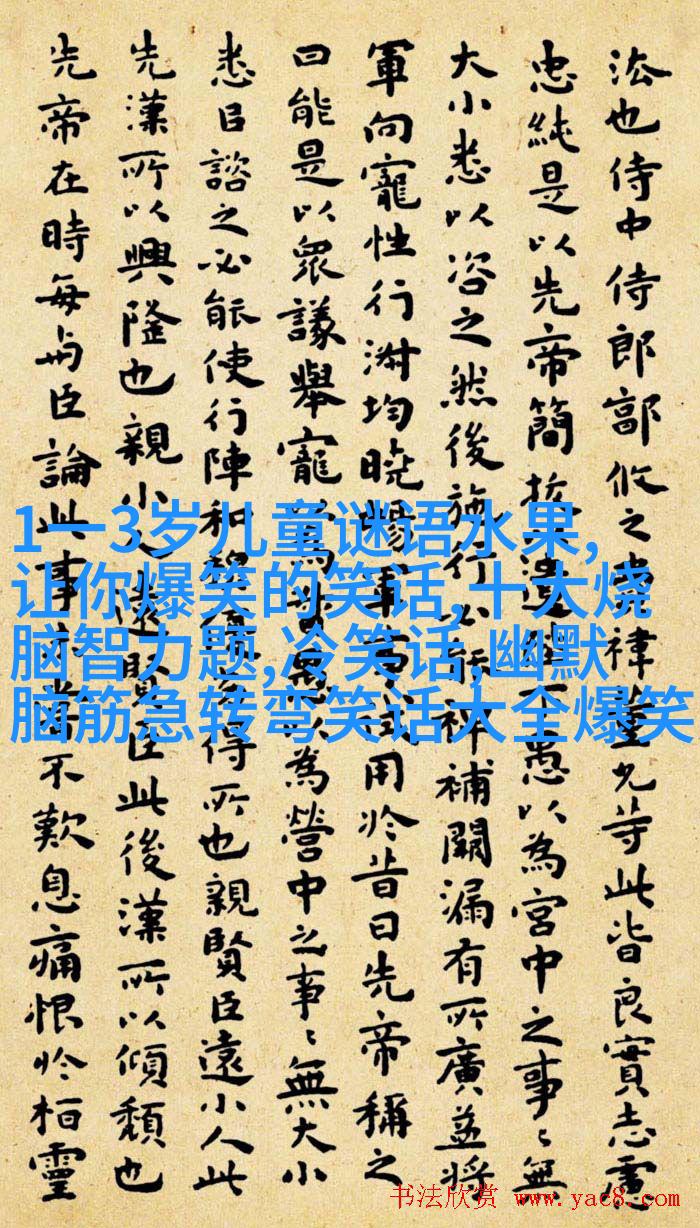 法也侍中侍郎郭攸之費禕董允等此皆良實志慮
忠純是以先帝簡拔遺陛下愚以為宮中之事〻無
大小悉以咨之然後施行必能裨補闕漏有所廣益將
軍向寵性行淑均曉暢軍事試用於昔日先帝稱之
曰能是以衆議舉寵為督愚以為營中之事〻無大小
悉以諮之必能使行陣和穆優劣得所也親賢臣遠小人此
先漢所以興隆也親小人遠賢臣此後漢所以傾頹也
先帝在時每與臣論此事未嘗不歎息痛恨於桓靈
1一3岁儿童谜语水果,
让你爆笑的笑话,十大烧
脑智力题,冷笑话,幽默
脑筋急转弯笑话大全爆笑
书法欣赏 www.yac8.com